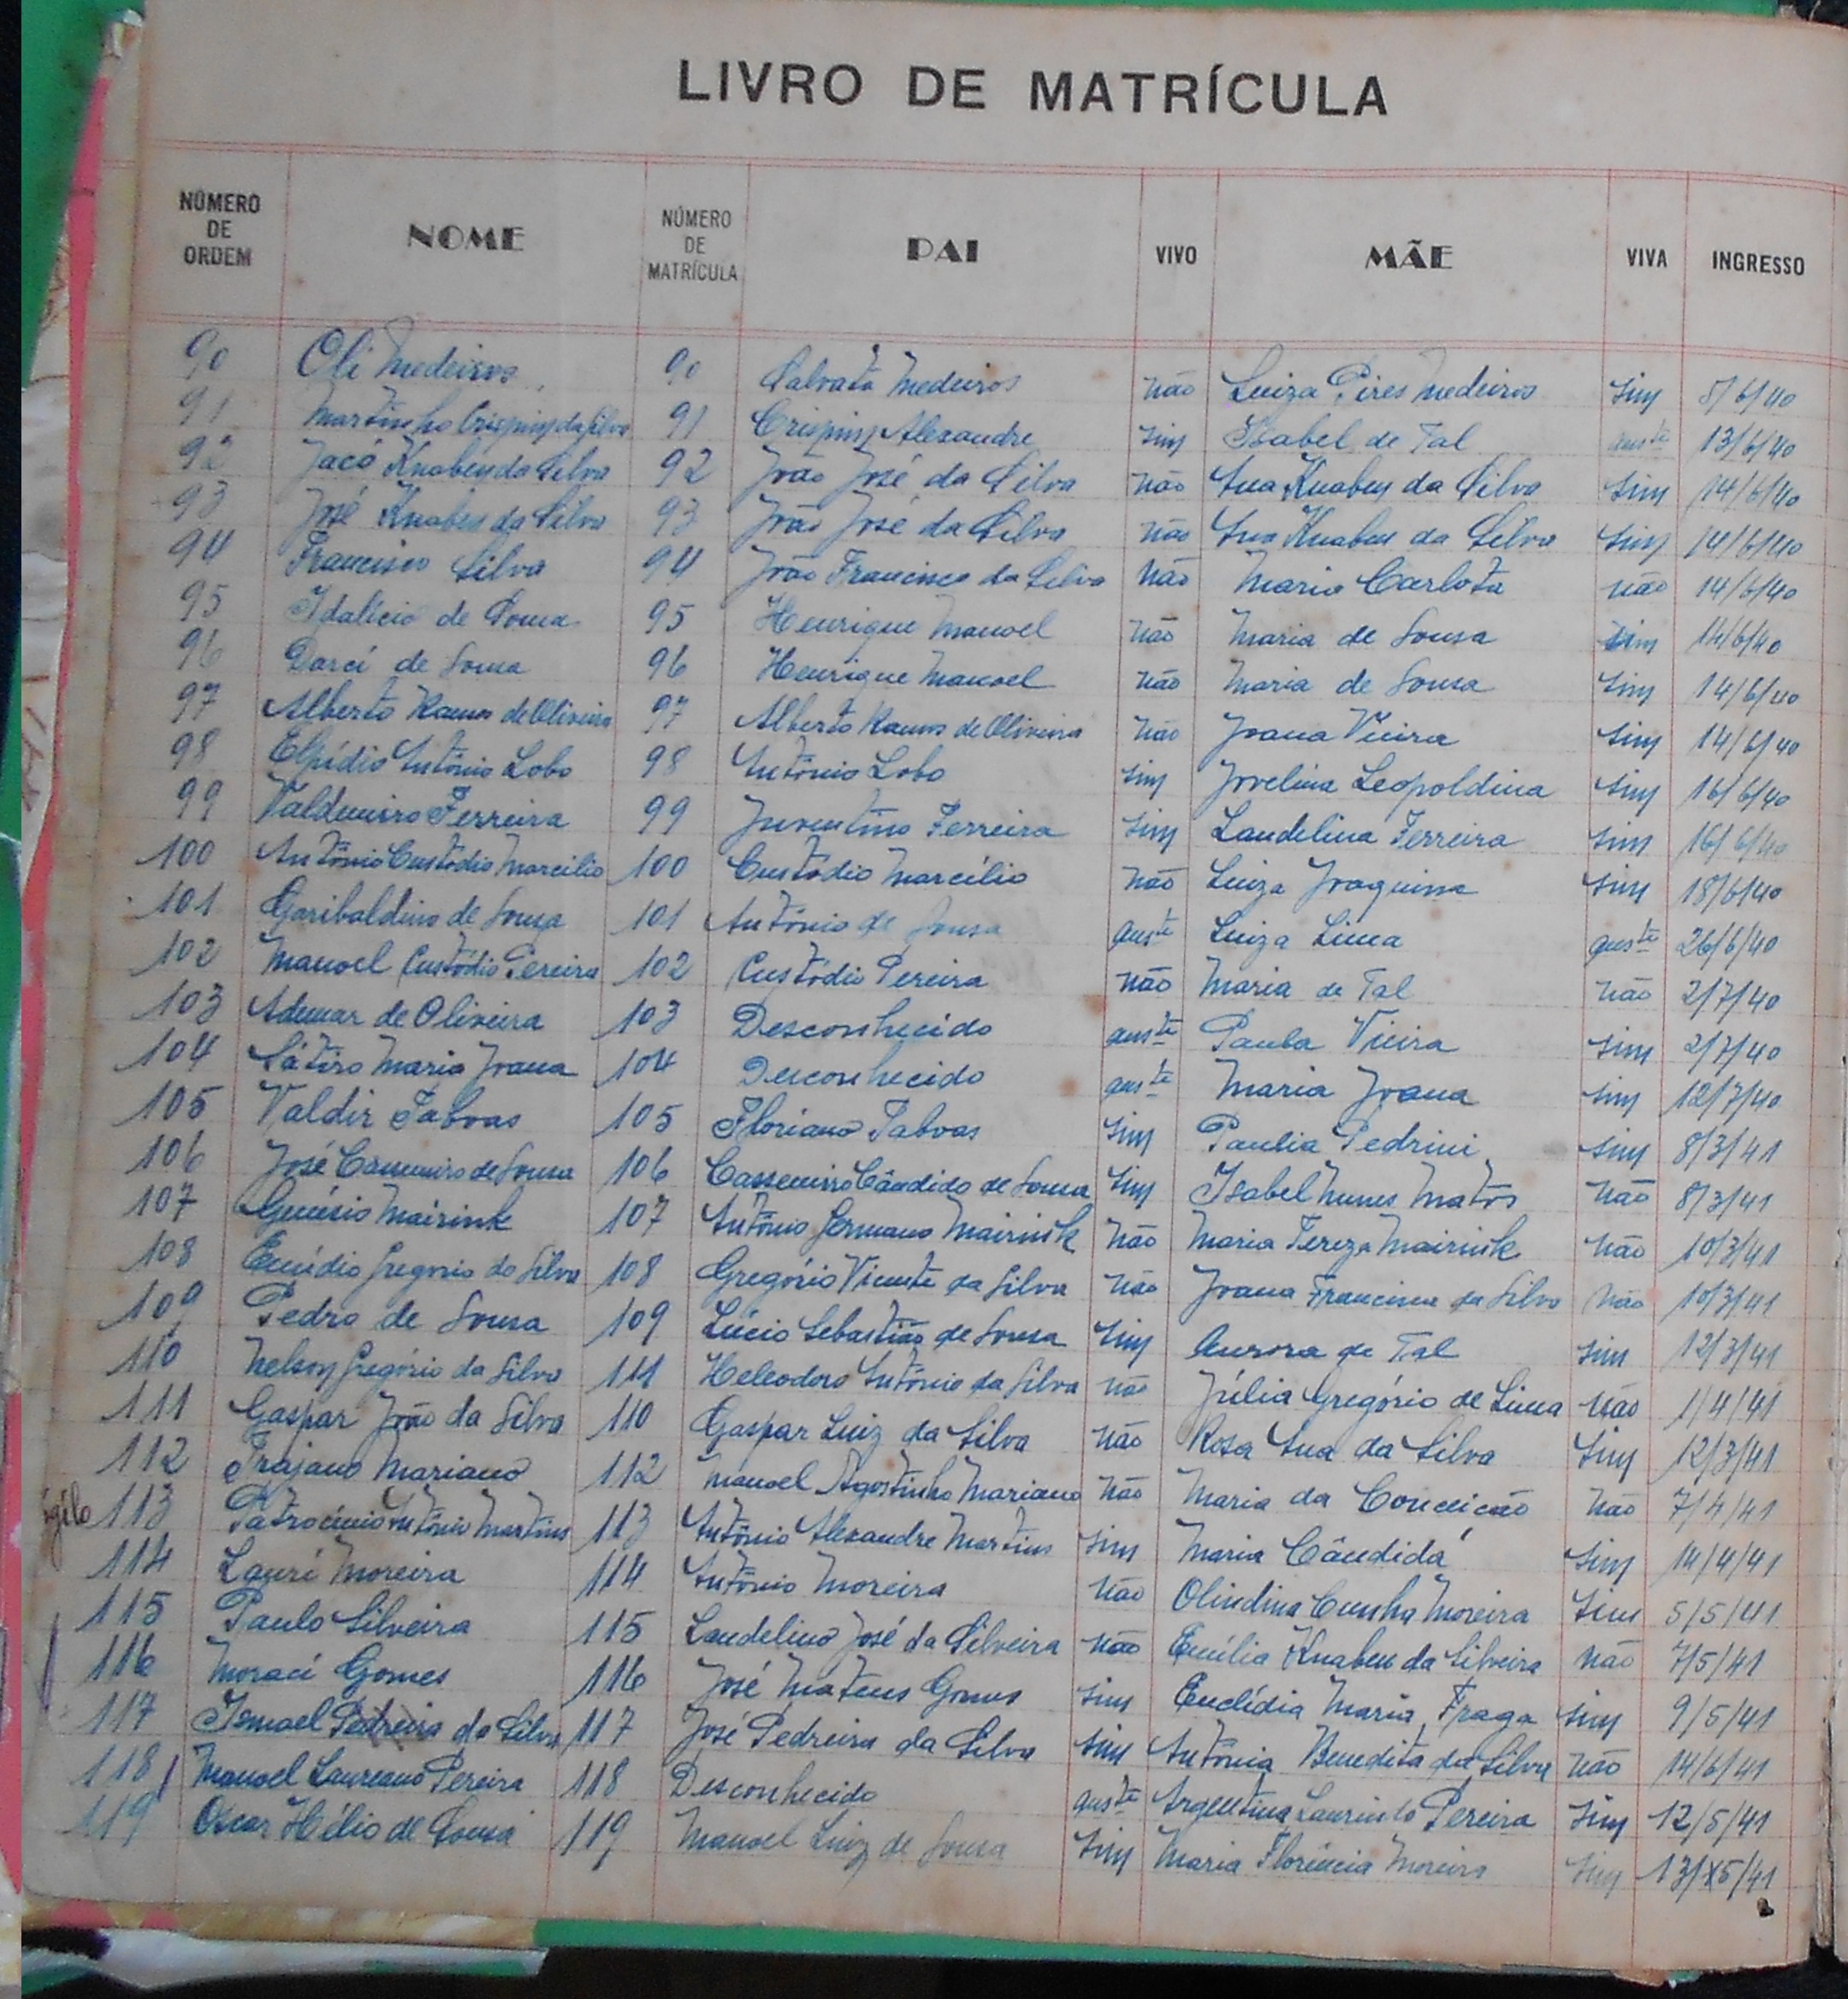 LIVRO DE MATRÍCULA
NÚMERO DE ORDEM NOME NÚMERO DE MATRÍCULA PAI VIVO MÃE VIVA INGRESSO
90 Oli Medeiros 90 Salvato Medeiros não Luiza Pires Medeiros sim 5/6/40
91 Martinho Crispim da Silva 91 Crispim Alexandre sim Isabel de Tal auste 13/6/40
92 Jacó Knaben da Silva 92 João José da Silva não Ana Knaben da Silva sim 14/6/40
93 José Knaben da Silva 93 João José da Silva não Ana Knaben da Silva sim 14/6/40
94 Francisco Silva 94 João Francisco da Silva não Maria Carlota não 14/6/40
95 Idalício de Sousa 95 Henrique Manoel não Maria de Sousa sim 14/6/40
96 Darcí de Sousa 96 Henrique Manoel não Maria de Sousa sim 14/6/40
97 Alberto Ramos de Oliveira 97 Alberto Ramos de Oliveira não Joana Vieira sim 14/6/40
98 Elpídio Antônio Lobo 98 Antônio Lobo sim Jovelina Leopoldina sim 16/6/40
99 Valdemiro Ferreira 99 Juventino Ferreira sim Laudelina Ferreira sim 16/6/40
100 Antônio Custódio Marcílio 100 Custódio Marcílio não Luiza Joaquina sim 18/6/40
101 Garibaldino de Sousa 101 Antônio de Sousa auste Luiza Lima auste 26/6/40
102 Manoel Custódio Pereira 102 Custódio Pereira não Maria de Tal não 2/7/40
103 Ademar de Oliveira 103 Desconhecido auste Paula Vieira sim 2/7/40
104 Sátiro Maria Joana 104 Desconhecido auste Maria Joana sim 12/7/40
105 Valdir Taboas 105 Floriano Taboas sim Paulia Pedrini sim 8/3/41
106 José Cassemiro de Sousa 106 Cassemiro Cândido de Sousa sim Isabel Nunes Matos não 8/3/41
107 Genésio Mairink 107 Antônio Germano Mairink não Maria Tereza Mairink não 10/3/41
108 Emídio Gregorio da Silva 108 Gregório Vicente da Silva não Joana Francisca da Silva não 10/3/41
109 Pedro de Sousa 109 Lúcio Sebastião de Sousa sim Aurora de Tal sim 12/3/41
110 Nelson Gregório da Silva 111 Heleodoro Antônio da Silva não Júlia Gregório de Lima não 1/4/41
111 Gaspar João da Silva 110 Gaspar Luiz da Silva não Rosa Ana da Silva sim 12/3/41
112 Trajano Mariano 112 Manoel Agostinho Mariano não Maria da Conceição não 7/4/41
113 Patrocínio Antônio Martins 113 Antônio Alexandre Martins sim Maria Cândida sim 14/4/41
114 Laurí Moreira 114 Antônio Moreira não Olindina Cunha Moreira sim 5/5/41
115 Paulo Silveira 115 Laudelino José da Silveira não Emília Knaben da Silveira não 7/5/41
116 Moraci Gomes 116 José Mateus Gomes sim Euclídia Maria Fraga sim 9/5/41
117 Ismael Pedreira da Silva 117 José Pedreira da Silva sim Antônia Benedita da Silva não 14/6/41
118 Manoel Laureano Pereira 118 Desconhecido auste Argentina Laurindo Pereira sim 12/5/41
119 Oscar Hélio de Sousa 119 Manoel Luiz de Sousa sim Maria Florência Moreira sim 13/5/41